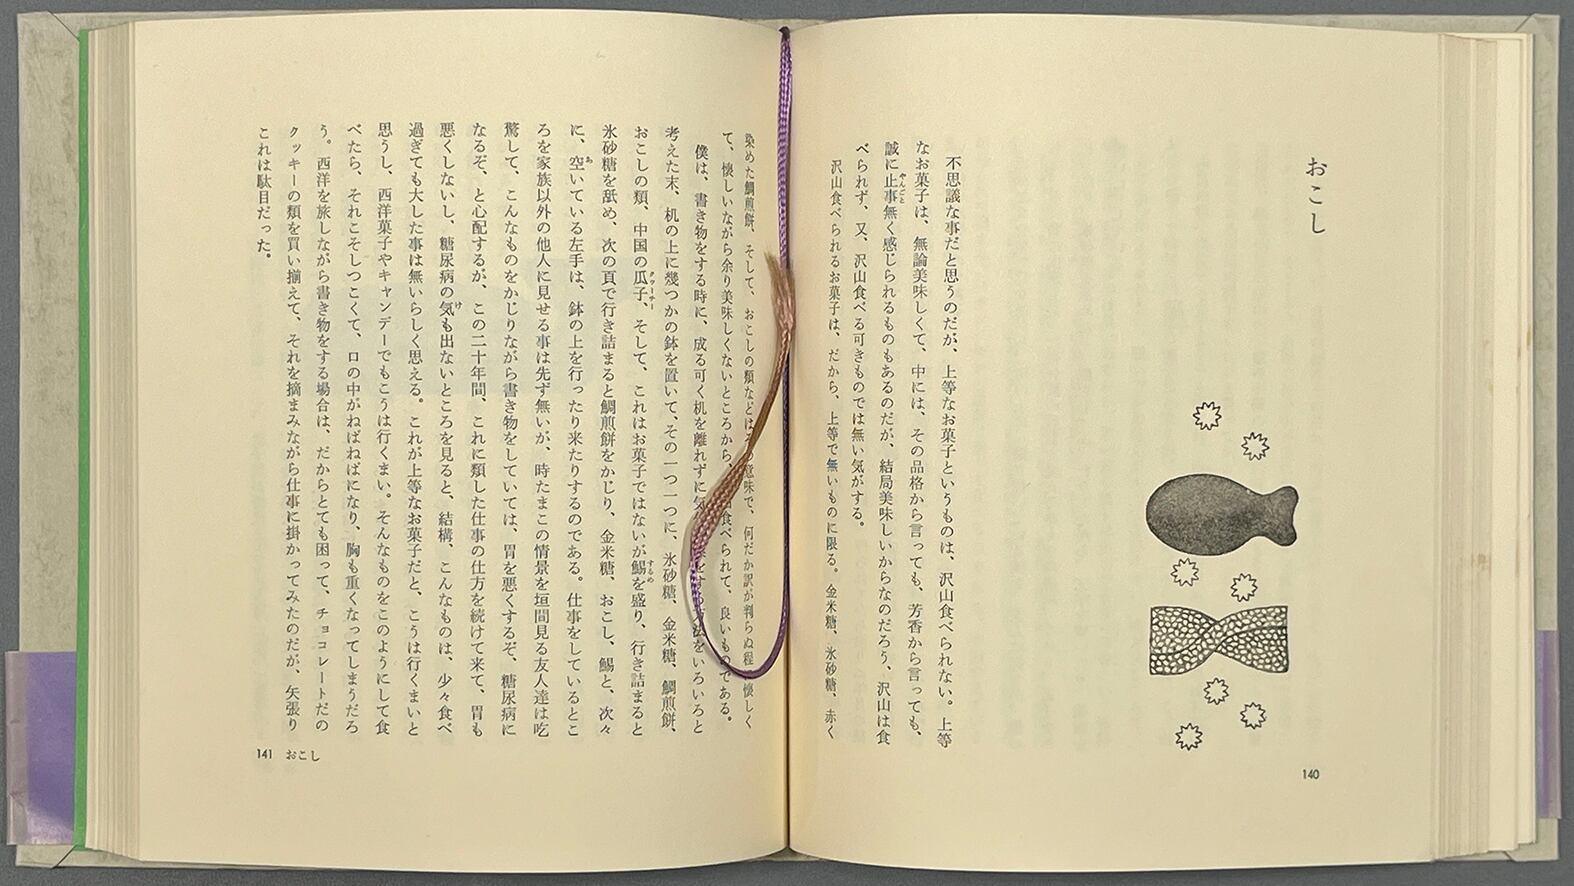 おこし
不思議な事だと思うのだが、上等なお菓子というものは、沢山食べられない。上等
なお菓子は、無論美味しくて、中には、その品格から言っても、芳香から言っても、
誠に止事無く感じられるものもあるのだが、結局美味しいからなのだろう、沢山は食
やんごと
べられず、又、沢山食べる可きものでは無い気がする。
沢山食べられるお菓子は、だから、上等で無いものに限る。金米糖、氷砂糖、赤く
140
染めた鯛煎餅、そして、おこしの類などはその意味で、何だか訳が判らぬ程に懐しく
て、懐しいながら余り美味しくないところから、食べられて、良いものである。
僕は、書き物をする時に、成る可く机を離れずに気をする方法をいろいろと
考えた末、机の上に幾つかの鉢を置いて、その一つ一つに、氷砂糖、金米糖、鯛煎餅、
おこしの類、中国の瓜子、そして、これはお菓子ではないが鯣を盛り、行き詰まると
クワーヅー
するめ
氷砂糖を舐め、次の頁で行き詰まると鯛煎餅をかじり、金米糖、おこし、鯣と、次々
に、空いている左手は、鉢の上を行ったり来たりするのである。仕事をしているとこ
あ
ろを家族以外の他人に見せる事は先ず無いが、時たまこの情景を垣間見る友人達は吃
驚して、こんなものをかじりながら書き物をしていては、胃を悪くするぞ、糖尿病に
なるぞ、と心配するが、この二十年間、これに類した仕事の仕方を続けて来て、胃も
悪くしないし、糖尿病の気も出ないところを見ると、結構、こんなものは、少々食べ
け
過ぎても大した事は無いらしく思える。これが上等なお菓子だと、こうは行くまいと
思うし、西洋菓子やキャンデーでもこうは行くまい。そんなものをこのようにして食
べたら、それこそしつこくて、口の中がねばねばになり、胸も重くなってしまうだろ
う。西洋を旅しながら書き物をする場合は、だからとても困って、チョコレートだの
クッキーの類を買い揃えて、それを摘まみながら仕事に掛かってみたのだが、矢張り
これは駄目だった。
141 おこし